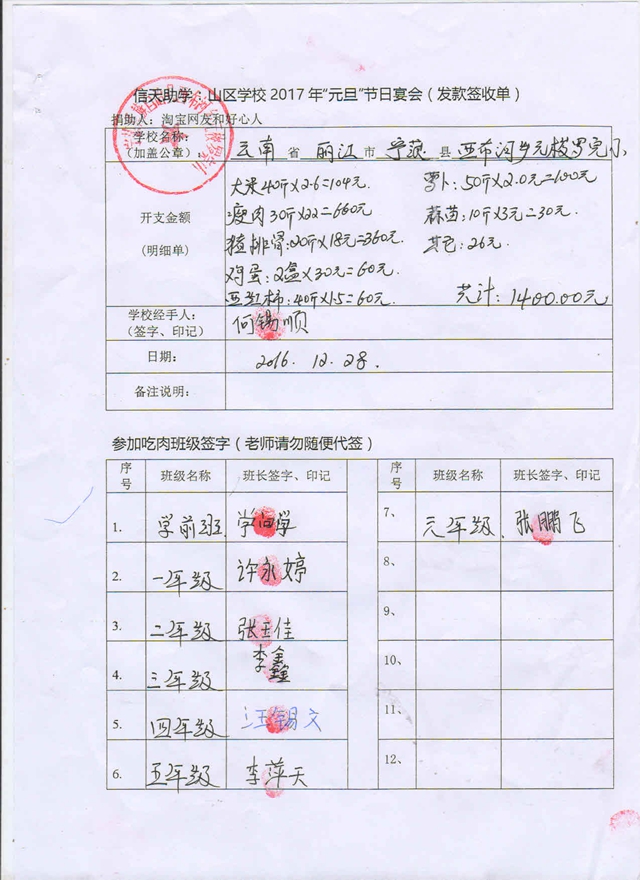 信天助学：山区学校2017年“元旦”节日宴会（发款签收单）
捐助人：淘宝网友和好心人
学校名称：
（加盖公章）：
云南 省 丽江 市 宁蒗 县 西布河乡
开支金额
（明细单）
大米40斤×2.6=104元 萝卜：50斤×2.0元=100元
瘦肉30斤×22=660元 蒜苗：10斤×3元=30元
猪排骨：20斤×18元=360元 其它：26元
鸡蛋：2盒×30元=60元
西红柿：40斤×1.5=60元 共计：1400.00元
学校经手人：
（签字、印记）
何锡顺
日期： 2016.12.28.
备注说明：
参加吃肉班级签字（老师请勿随便代签）
序号 班级名称 班长签字、印记 序号 班级名称 班长签字、印记
1. 学前班 7、 六年级 张鹏飞
2. 一年级 许永婷 8、
3. 二年级 张玉佳 9、
4. 三年级 李鑫 10、
5. 四年级 汪锡文 11、
6. 五年级 李萍天 12、